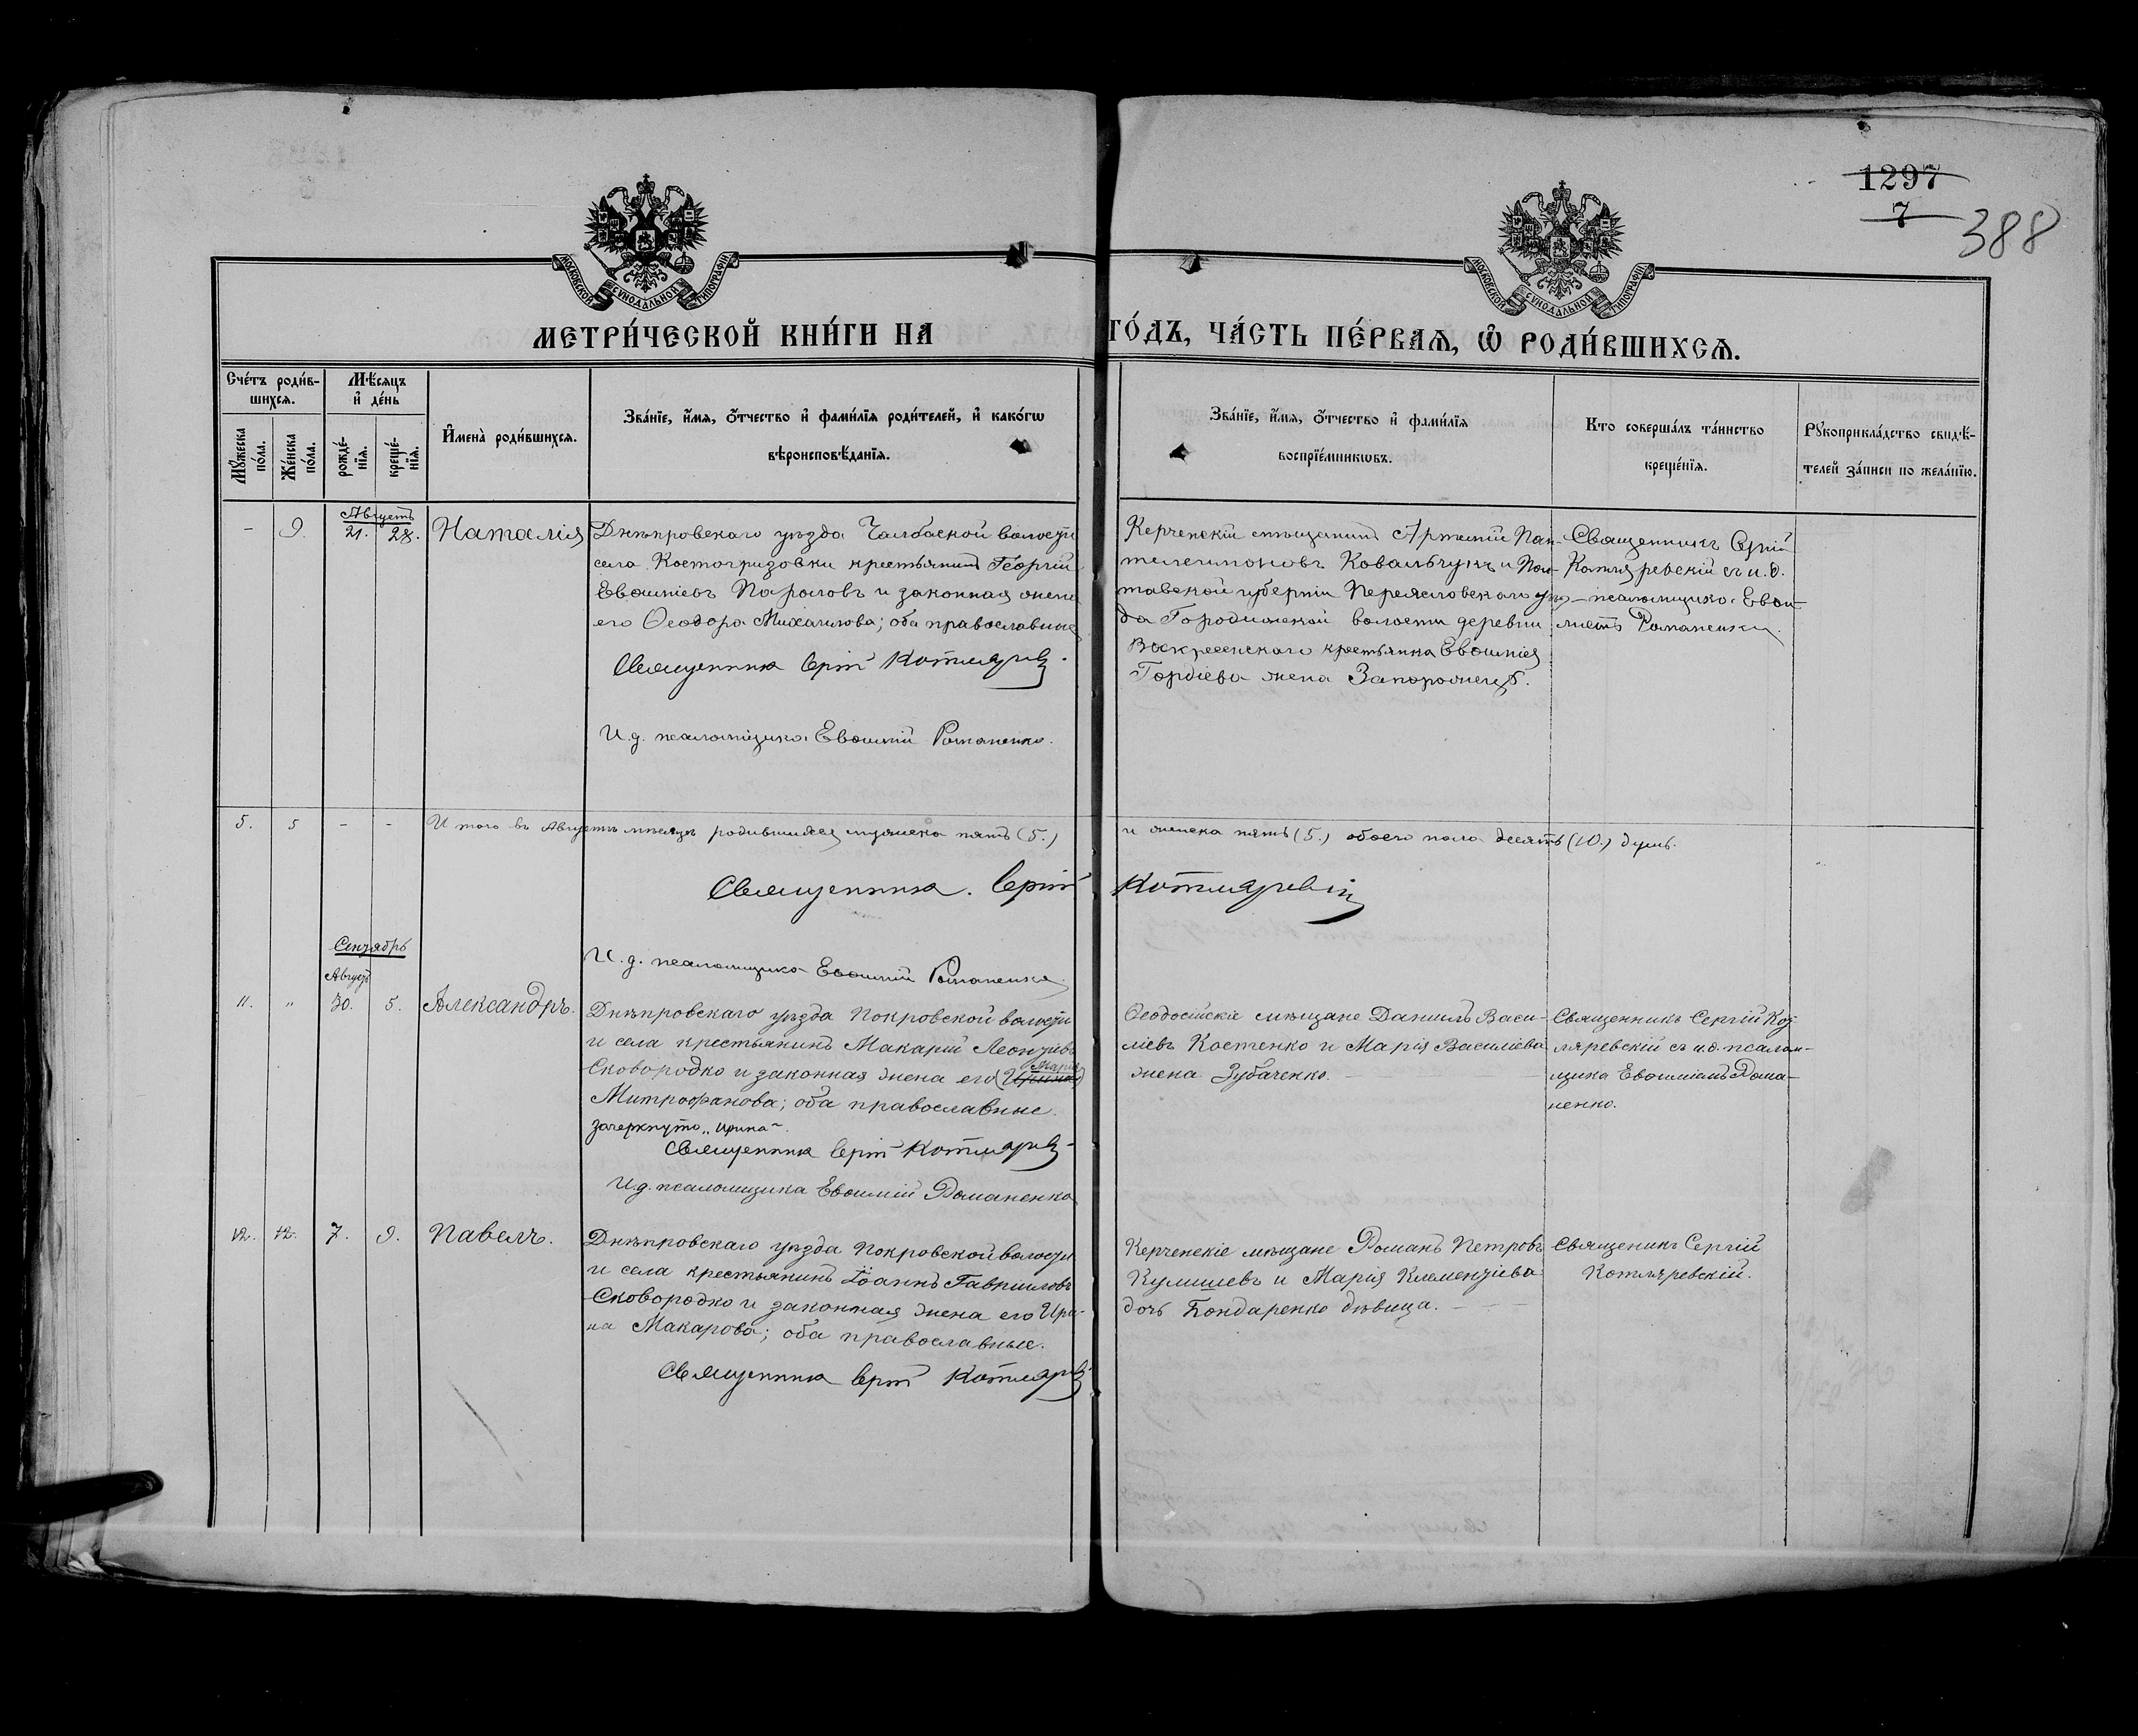 1297
7
388
МОСКОВСКОЙ СѴНОДАЛЬНОЙ ТИПОГРАФІИ
МОСКОВСКОЙ СѴНОДАЛЬНОЙ ТИПОГРАФІИ
МЕТРИ́ЧЕСКОЙ КНИ́ГИ НА
ГО́ДЪ, ЧА́СТЬ ПЕ́РВАѦ, Ѽ РОДИ́ВШИХСѦ.
Сче́тъ роди́в-
шихсѧ.
Мѣ́сяцъ
и҆ де́нь
Мꙋ́жеска
по́ла.
Же́нска
по́ла.
рожде́-
нїѧ.
креще́-
нїѧ.
И҆мена̀ роди́вшихсѧ.
Зва́нїе, и҆́мѧ, ѻ҆́тчество и҆ фами́лїѧ роди́телей, и҆ како́гѡ
вѣроисповѣ́данїѧ.
Зва́нїе, и҆́мѧ, ѻ҆́тчество и҆ фами́лїѧ
воспрїе́мникѡвъ.
Кто соверша́лъ та́инство
креще́нїѧ.
Рꙋкоприкла́дство свидѣ́-
телей за́писи по жела́нїю.
Августъ
- 9. 21. 28. Наталія
Днѣпровскаго уѣзда Чалбаской волости
села Костогризовки крестьянинъ Георгій
Евѳиміевъ Паролов и законная жена
его Ѳеодора Михаилова; оба православные
Священникъ Сергій Котляревскій
И. д. псаломщика Евѳимій Романенко.
Керченскій мѣщанинъ Артемій Пан-
телеимоновъ Ковальчукъ и Пол-
тавской губерніи Переяславскаго уѣз-
да Городижской волости деревни
Воскресенскаго крестьянка Евѳимія
Гордіева жена Запорожецъ.
Священникъ Сергій
Котляревскій съ и. д.
псаломщика Евѳи-
міемъ Романенко.
5. 5 - - И того въ Августѣ мѣсяцѣ родившихся мужеска пять (5.)
и женска пять (5.) обоего пола десять (10.) душъ.
Священникъ Сергій Котляревскій
И. д. псаломщика Евѳимій Романенко
Сентябрь
Августъ
11. " 30. 5. Александръ.
Днѣпровскаго уѣзда Покровской волости
и села крестьянинъ Макарій Леонтіевъ
Марія
Сковородко и законная жена его (Ирина)
Митрофанова; оба православные.
зачеркнуто „Ирина“.
Священникъ Сергій Котляревскій
И. д. псаломщика Евѳимій Романенко
Ѳеодосійскіе мѣщане Даніилъ Васи-
ліевъ Костенко и Марія Василіева
жена Зубаченко.
Священникъ Сергій Кот-
ляревскій съ и. д. псалом-
щика Евѳиміемъ Рома-
ненко.
12. 12. 7. 9. Павелъ.
Днѣпровскаго уѣзда Покровской волости
и села крестьянинъ Іоаннъ Гавриловъ
Сковородко и законная жена его Ири-
на Макарова; оба православные.
Священникъ Сергій Котляревскій
Керченскіе мѣщане Романъ Петровъ
Кулишевъ и Марія Клементіева
дочь Бондаренко дѣвица.
Священникъ Сергій
Котляревскій.